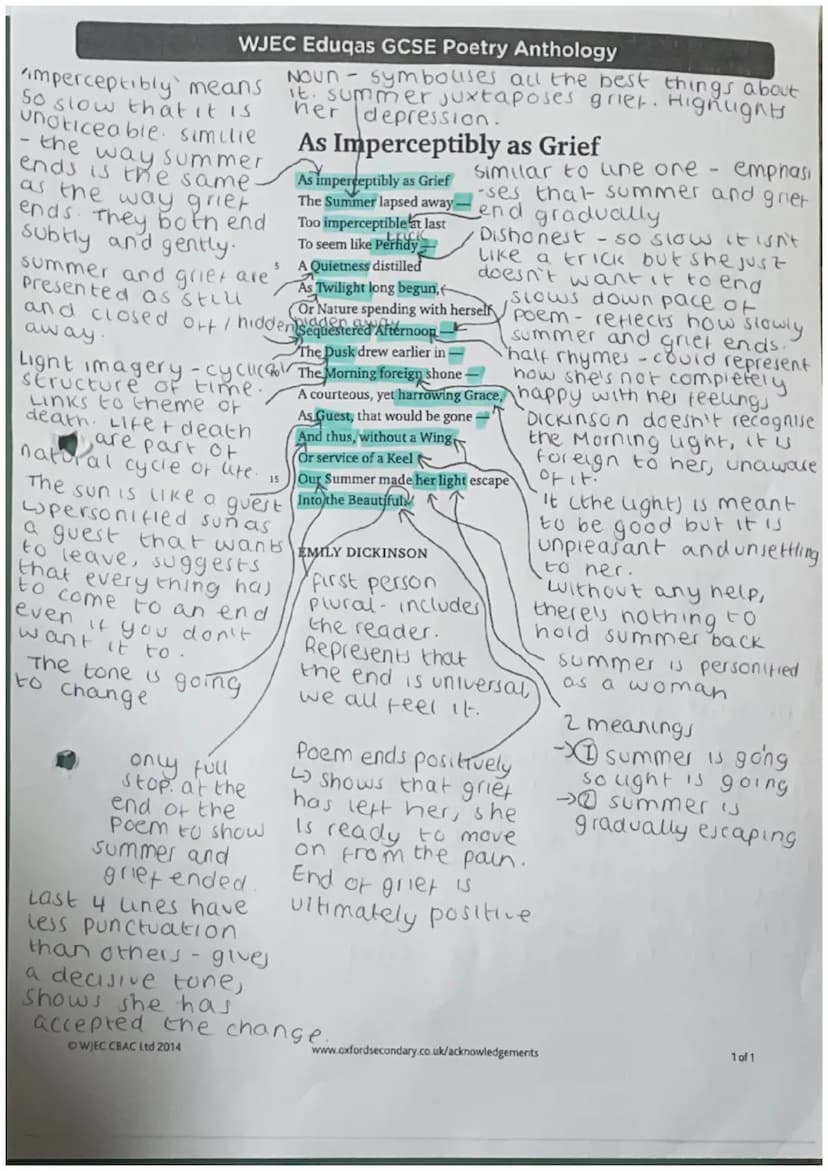 WJEC Eduqas GCSE Poetry Anthology
'imperceptibly' means
so slow that it is
unoticeable. similie
- the way summer
ends is the same
as the way grief
ends. They both end
subtly and gently.
summer and grief are
presented as still
and closed off / hidden
away.
Light imagery - cyclical
structure of time.
Links to theme of
death. Life + death
are part of
natural cycle of life.
The sun is like a guest
↳ personified sun as
a guest that wants
to leave, suggests
that everything has
to come to an end
even if you don't
want it to.
The tone is going
to change
Noun - symbolises all the best things about
it. summer juxtaposes grief. Highlights
her depression.
As Imperceptibly as Grief
As imperceptibly as Grief
The Summer lapsed away —
Too imperceptible at last
trick
To seem like Perfidy —
5
A Quietness distilled
As Twilight long begun,
Or Nature spending with herself
hidden away
Sequestered Afternoon —
The Dusk drew earlier in —
The Morning foreign shone —
A courteous, yet harrowing Grace,
As Guest, that would be gone —
And thus, without a Wing
Or service of a Keel
15
Our Summer made her light escape
Into the Beautiful.
EMILY DICKINSON
similar to line one - emphasi
-ses that summer and grief
end gradually
Dishonest - so slow it isn't
like a trick but she just
doesn't want it to end
slows down pace of
poem - reflects how slowly
summer and grief ends.
half rhymes - could represent
how she's not completely
happy with her feelings
Dickinson doesn't recognise
the Morning light, it is
foreign to her, unaware
of it.
It (the light) is meant
to be good but it is
unpleasant and unsettling
to her.
Without any help,
there's nothing to
hold summer back
summer is personified
as a woman
2 meanings
→① summer is going
so light is going
→② summer is
gradually escaping
first person
plural - includes
the reader.
Represents that
the end is universal,
we all feel it.
Poem ends positively
↳ shows that grief
has left her, she
is ready to move
on from the pain.
End of grief is
ultimately positive
only full
stop. at the
end of the
poem to show
summer and
grief ended.
Last 4 lines have
less punctuation
than others - gives
a decisive tone,
shows she has
accepted the change.
© WJEC CBAC Ltd 2014
www.oxfordsecondary.co.uk/acknowledgements
1 of 1